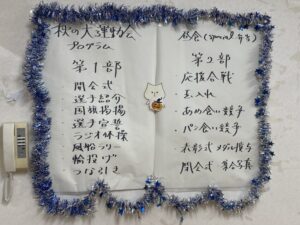 秋の大運動会
プログラム
第1部
開会式
選手紹介
国旗掲揚
選手宣誓
ラジオ体操
風船ラリー
輪投げ
つな引き
昼食(special弁当)
第2部
応援合戦
・玉入れ
・あめ食い競争
・パン食い競争
表彰式 メダル授与
閉会式 集合写真